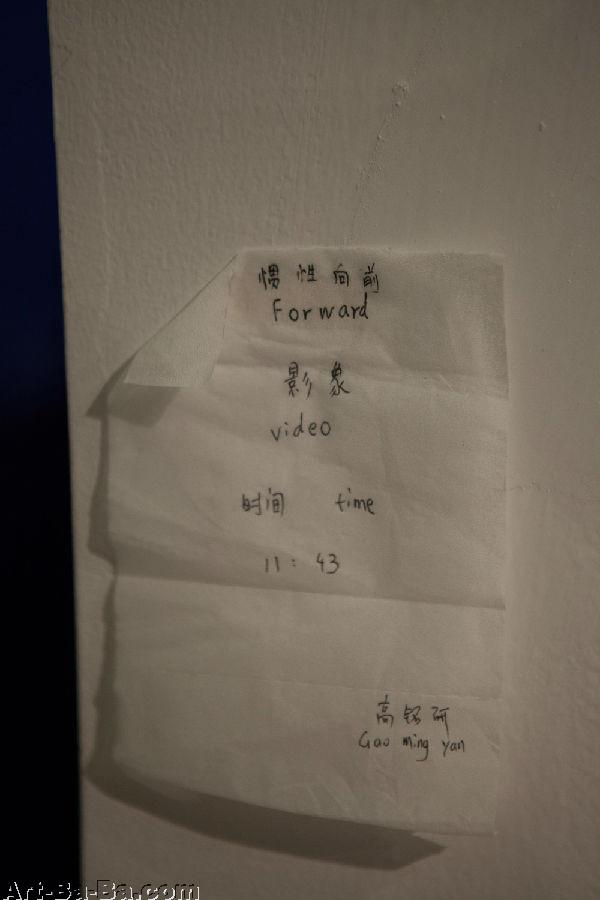 惯性向前
Forward
影象
video
时间 time
11:43
高铭研
Gao ming yan
Art-Ba-Ba.com